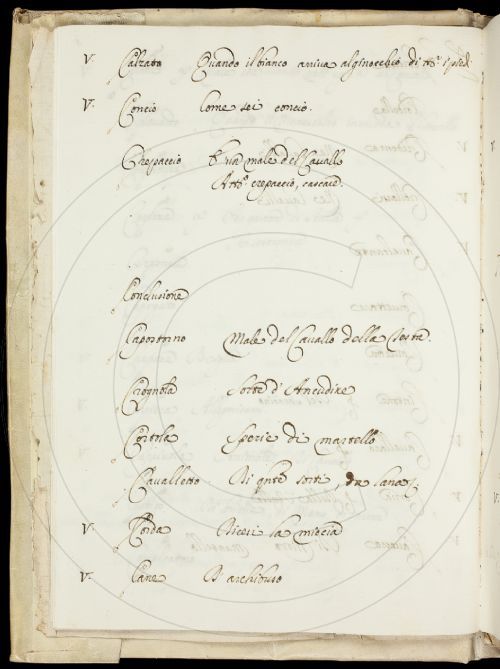 V. Calzato Quando il bianco arriva al ginocchio di
V. Concio Come sei concio.
Crepaccio È un male del Cavallo
crepaccio,
Conclusione
Capostorno Male del Cavallo della Testa.
Crognola Sorte d'Ancudine
Cortola Sporie di martello
Cavalletto Di qnte sorte, da lana
V. Corda Dicesi la miccia
V. Cane D'archibuso